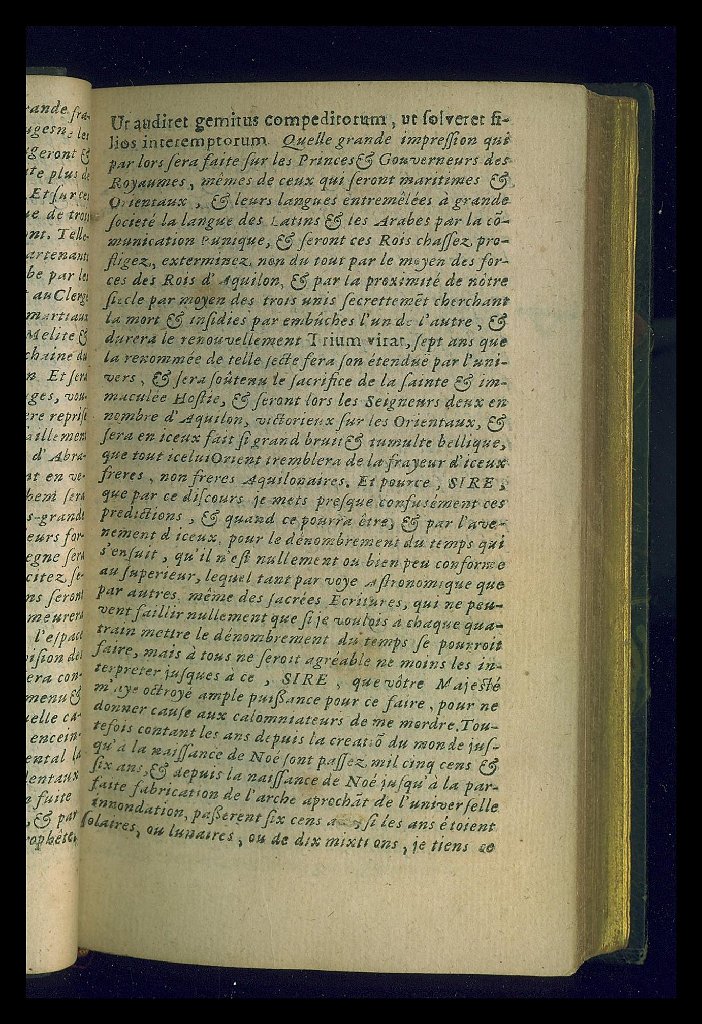 ande fra-
ugesne les
geront &
te plus de
Et sur ces
ue de trois
nt. Telle-
artenants
be par les
au Clergé
martiaux
Melite &
chaine du
n Et sera
ges, vou-
ere reprise
aillement
d'Abra-
nt en ve-
hem sera
s-grande
eurs for-
egne sera
citez, se-
ns seront
meurera
l'espace
ision des
era con-
menu &
uelle ca-
encein-
ental la
dentaux
n fuite
, & par
rophétes,
Ut audiret gemitus compeditorum, ut solveret fi-
lios interemptorum. Quelle grande impression qui
par lors sera faite sur les Princes & Gouverneurs des
Royaumes, mêmes de ceux qui seront maritimes &
Orientaux, & leurs langues entremêlées à grande
societé la langue des Latins & les Arabes par la cõ-
munication Punique, & seront ces Rois chassez, pro-
fligez, exterminez, non du tout par le moyen des for-
ces des Rois d'Aquilon, & par la proximité de nôtre
siecle par moyen des trois unis secrettemēt cherchant
la mort & insidies par embûches l'un de l'autre, &
durera le renouvellement Trium virat, sept ans que
la renommée de telle secte fera son étendue par l'uni-
vers, & sera soûtenu le sacrifice de la sainte & im-
maculée Hostie, & seront lors les Seigneurs deux en
nombre d'Aquilon, victorieux sur les Orientaux, &
sera en iceux fait si grand bruit & tumulte bellique,
que tout icelui Orient tremblera de la frayeur d'iceux
freres, non freres Aquilonaires. Et pource, SIRE,
que par ce discours je mets presque confusément ces
predictions, & quand ce pourra être, & par l'ave-
nement d'iceux, pour le dénombrement du temps qui
s'ensuit, qu'il n'est nullement ou bien peu conforme
au superieur, lequel tant par voye Astronomique que
par autres, même des sacrées Ecritures, qui ne peu-
vent faillir nullement que si je voulois à chaque qua-
train mettre le dénombrement du temps se pourroit
faire, mais à tous ne seroit agréable ne moins les in-
terpreter jusques à ce, SIRE, que vôtre Majesté
m'aye octroyé ample puissance pour ce faire, pour ne
donner cause aux calomniateurs de me mordre. Tou-
tefois contant les ans depuis la creatiõ du monde jus-
qu'à la naissance de Noë sont passez mil cinq cens &
six ans, & depuis la naissance de Noë jusqu'à la par-
faite fabrication de l'arche aprochāt de l'universelle
innondation, passerent six cens ans, si les ans étoient
solaires, ou lunaires, ou de dix mixtions, je tiens ce